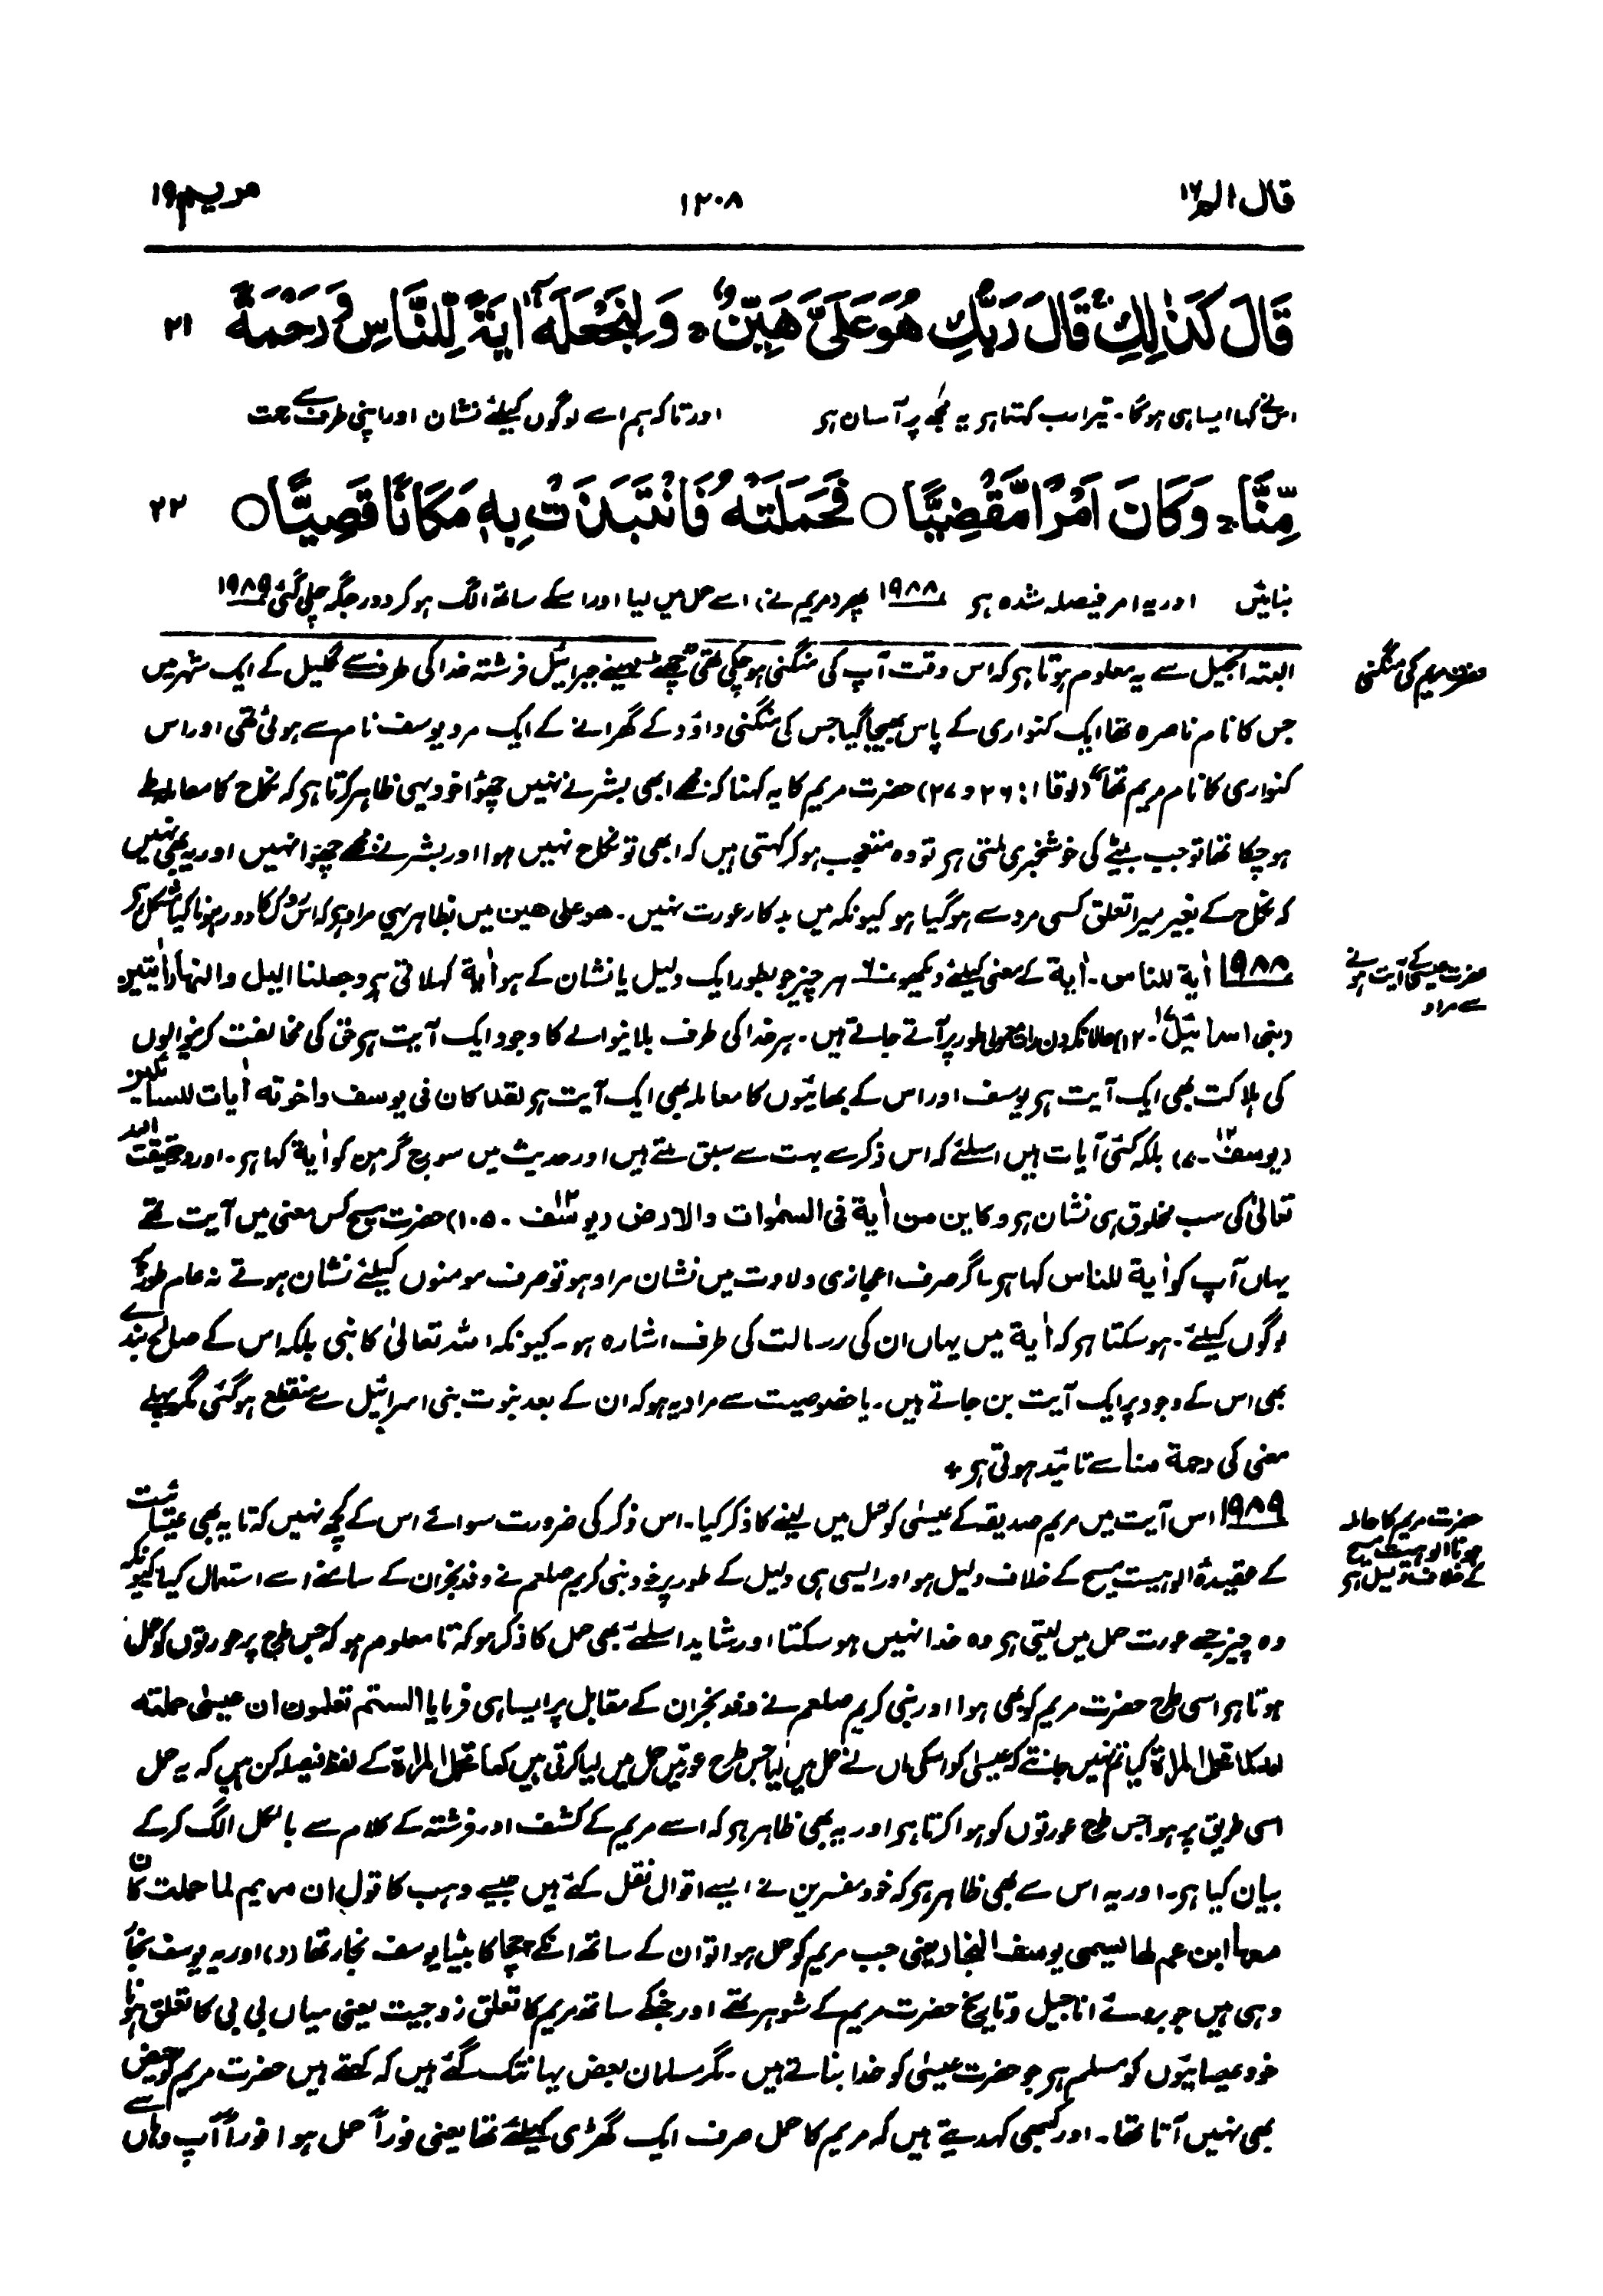 قال الم ۱۶
۱۲۰۸
مریم ۱۹
قَالَ كَذٰلِكِ قَالَ رَبُّكِ هُوَ عَلَیَّ هَیِّنٌ وَلِنَجْعَلَهٗۤ اٰیَةً لِّلنَّاسِ وَرَحْمَةً ۲۱
اس نے کہا ایسا ہی ہوگا۔ تیرا رب کہتا ہے یہ مجھ پر آسان ہے اور تاکہ ہم اسے لوگوں کیلئے نشان اور اپنی طرف سے رحمت
مِّنَّا وَكَانَ اَمْرًا مَّقْضِیًّا ○ فَحَمَلَتْهُ فَانْتَبَذَتْ بِهٖ مَكَانًا قَصِیًّا ○ ۲۲
بنائیں اور یہ امر فیصلہ شدہ ہے ۱۹۸۸ پھر (مریم نے) اسے حمل میں لیا اور اسکے ساتھ الگ ہو کر دور جگہ چلی گئی ۱۹۸۹
حضرت مریم کی منگنی
البتہ انجیل سے یہ معلوم ہوتا ہے کہ اس وقت آپ کی منگنی ہو چکی تھی "چھٹے مہینے جبرائیل فرشتہ خدا کی طرف سے گلیل کے ایک شہر میں
جس کا نام ناصرہ تھا ایک کنواری کے پاس بھیجا گیا جس کی منگنی داؤد کے گھرانے کے ایک مرد یوسف نام سے ہوئی تھی اور اس
کنواری کا نام مریم تھا" (لوقا ۱: ۲۶ و ۲۷) حضرت مریم کا یہ کہنا کہ مجھے ابھی بشر نے نہیں چھوا خود یہی ظاہر کرتا ہے کہ نکاح کا معاملہ طے
ہو چکا تھا تو جب بیٹے کی خوشخبری ملتی ہے تو وہ متعجب ہو کر کہتی ہیں کہ ابھی تو نکاح نہیں ہوا اور بشر نے مجھے چھوا نہیں اور یہ بھی نہیں
کہ نکاح کے بغیر میرا تعلق کسی مرد سے ہو گیا ہو کیونکہ میں بدکار عورت نہیں۔ ھو علی ھین میں بظاہر یہی مراد ہے کہ اس روک کا دور ہونا کیا مشکل ہے
حضرت عیسیٰ کے آیت ہونے سے مراد
۱۹۸۸ اٰیة للناس۔ اٰیة کے معنی کیلئے دیکھو ۶۰ ہر چیز جو بطور ایک دلیل یا نشان کے ہو اٰیة کہلاتی ہے وجعلنا الیل والنھار اٰیتین
(بنی اسرائیل ۱۷۔ ۱۲) حالانکہ دن رات معمولی طور پر آتے جاتے ہیں۔ ہر خدا کی طرف بلانیوالے کا وجود ایک آیت ہے حق کی مخالفت کرنیوالوں
کی ہلاکت بھی ایک آیت ہے یوسف اور اس کے بھائیوں کا معاملہ بھی ایک آیت ہے لقد کان فی یوسف واخوته اٰیات للسائلین
(یوسف ۱۲۔ ۷) بلکہ کئی آیات ہیں اسلئے کہ اس ذکر سے بہت سے سبق ملتے ہیں اور حدیث میں سورج گرہن کو اٰیة کہا ہے۔ اور درحقیقت اللہ
تعالیٰ کی سب مخلوق ہی نشان ہے وکاین من اٰیة فی السمٰوات والارض (یوسف ۱۲۔ ۱۰۵) حضرت مسیح کس معنی میں آیت تھے
یہاں آپ کو اٰیة للناس کہا ہے۔ اگر صرف اعجازی ولادت میں نشان مراد ہو تو صرف مومنوں کیلئے نشان ہوتے نہ عام طور پر
لوگوں کیلئے۔ ہو سکتا ہے کہ اٰیة میں یہاں ان کی رسالت کی طرف اشارہ ہو۔ کیونکہ اللہ تعالیٰ کا نبی بلکہ اس کے صالح بندے
بھی اس کے وجود پر ایک آیت بن جاتے ہیں۔ یا خصوصیت سے مراد یہ ہو کہ ان کے بعد نبوت بنی اسرائیل سے منقطع ہو گئی مگر پہلے
معنی کی رحمة منا سے تائید ہوتی ہے +
حضرت مریم کا حاملہ ہونا الوہیت مسیح کے خلاف دلیل ہے
۱۹۸۹ اس آیت میں مریم صدیقہ کے عیسیٰ کو حمل میں لینے کا ذکر کیا۔ اس ذکر کی ضرورت سوائے اس کے کچھ نہیں کہ تا یہ بھی عیسائیت
کے عقیدۂ الوہیت مسیح کے خلاف دلیل ہو اور ایسی ہی دلیل کے طور پر خود نبی کریم صلعم نے وفد نجران کے سامنے اسے استعمال کیا کیونکہ
وہ چیز جسے عورت حمل میں لیتی ہے وہ خدا نہیں ہو سکتا اور شاید اسلئے بھی حمل کا ذکر ہو کہ تا معلوم ہو کہ جس طرح پر عورتوں کو حمل
ہوتا ہے اسی طرح حضرت مریم کو بھی ہوا اور نبی کریم صلعم نے وفد نجران کے مقابل پر ایسا ہی فرمایا الستم تعلمون ان عیسیٰ حملته
امه کما تحمل المراة کیا تم نہیں جانتے کہ عیسیٰ کو اسکی ماں نے حمل میں لیا جس طرح عورتیں حمل میں لیا کرتی ہیں کما تحمل المراة کے لفظ فیصلہ کن ہیں کہ یہ حمل
اسی طریق پر ہوا جس طرح عورتوں کو ہوا کرتا ہے اور یہ بھی ظاہر ہے کہ اسے مریم کے کشف اور فرشتہ کے کلام سے بالکل الگ کر کے
بیان کیا ہے۔ اور یہ اس سے بھی ظاہر ہے کہ خود مفسرین نے ایسے اقوال نقل کئے ہیں جیسے وہب کا قول ان مریم لما حملت کان
معہا ابن عم لھا یسمی یوسف النجار یعنی جب مریم کو حمل ہوا تو ان کے ساتھ انکے چچا کا بیٹا یوسف نجار تھا (د) اور یہ یوسف نجار
وہی ہیں جو بروئے اناجیل و تاریخ حضرت مریم کے شوہر تھے اور جنکے ساتھ مریم کا تعلق زوجیت یعنی میاں بی بی کا تعلق ہونا
خود عیسائیوں کو مسلم ہے جو حضرت عیسیٰ کو خدا بناتے ہیں۔ مگر مسلمان بعض یہانتک گئے ہیں کہ کہتے ہیں حضرت مریم کو حیض
بھی نہیں آتا تھا۔ اور کبھی کہدیتے ہیں کہ مریم کا حمل صرف ایک گھڑی کیلئے تھا یعنی فوراً حمل ہوا فوراً آپ وہاں سے